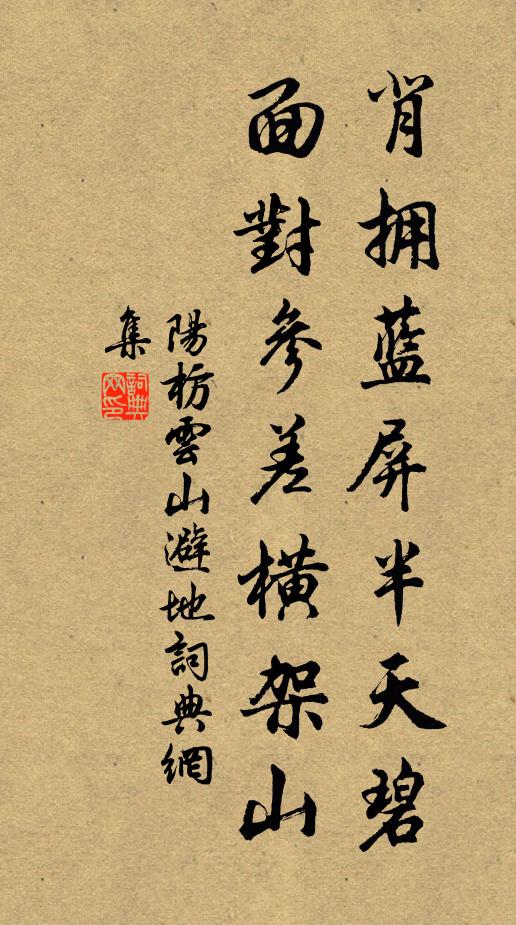 背拥蓝屏半天碧
面對參差橫架山
陽枋雲山避地詞典網
集
詞典網印